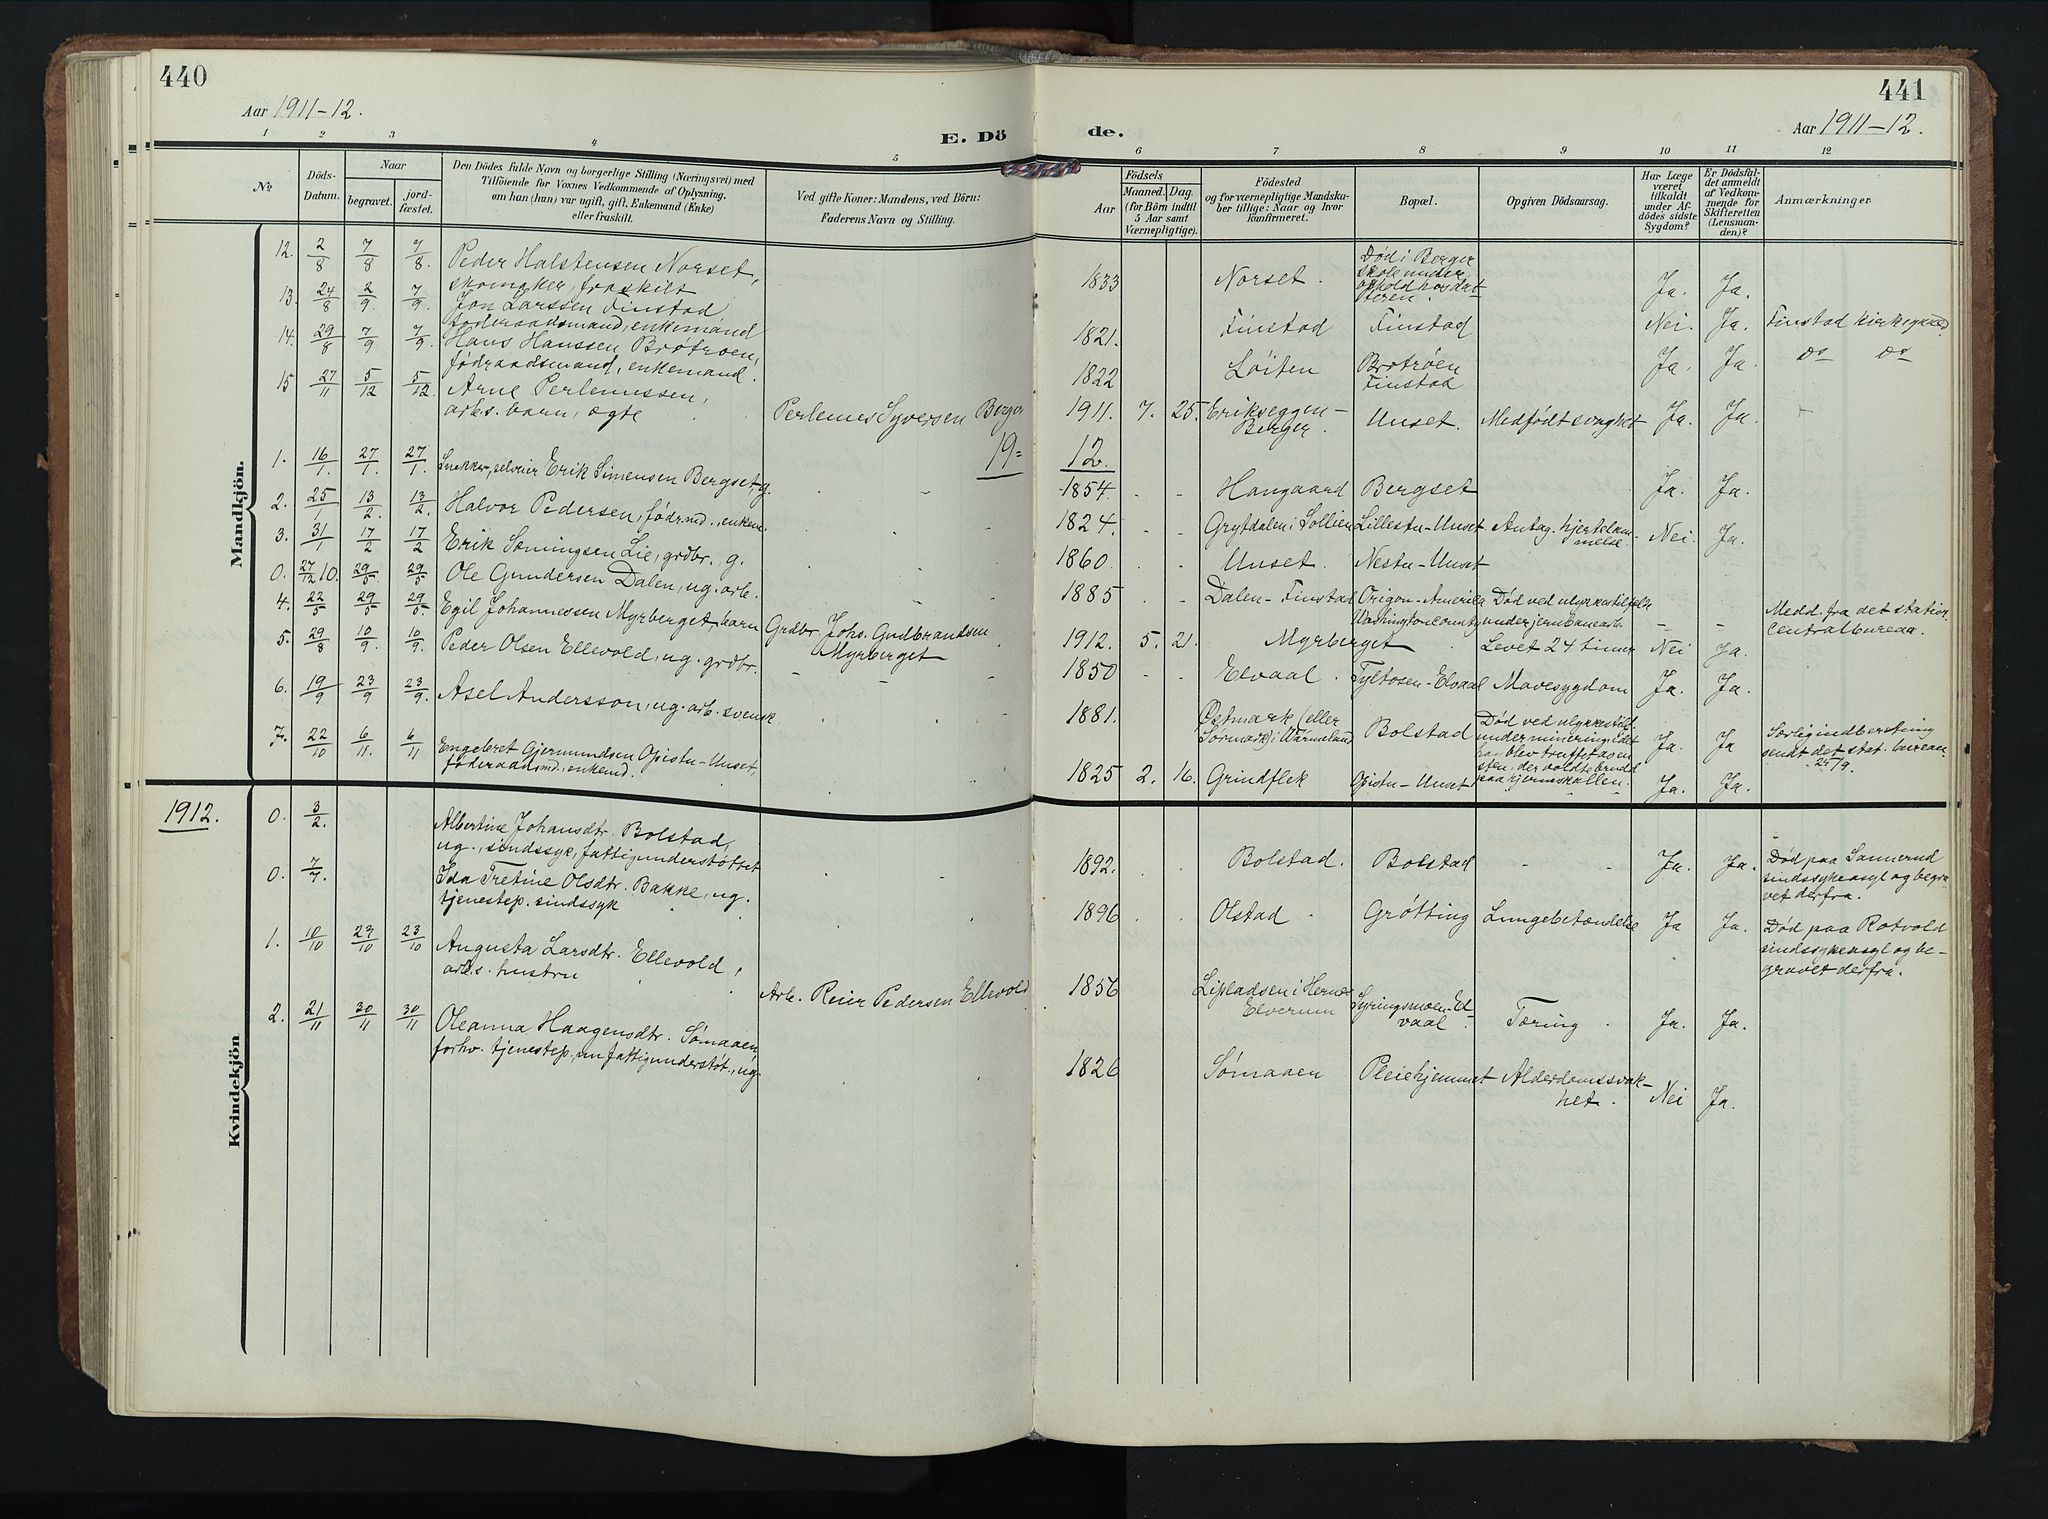 440
Aar 1911-12.
E. Dö
1 2 3 4 5
No.
Döds-
Datum.
Naar
begravet.
jord-
fæstet.
Den Dödes fulde Navn og borgerlige Stilling (Næringsvei) med
Tilföiende for Voxnes Vedkommende af Oplysning,
om han (hun) var ugift, gift, Enkemand (Enke)
eller fraskilt.
Ved gifte Koner: Mandens, ved Börn:
Faderens Navn og Stilling.
Mandkjön.
12. 2/8 7/8 7/8. Peder Halstensen Norset,
skomaker, fraskilt
13. 24/8 2/9. 7/9. Jon Larssen Finstad
foderaadsmand, enkemand
14. 29/8 7/9 7/9. Hans Hanssen Brøtrøen,
fødraadsmand, enkemand.
15 27/11 5/12 5/12. Arne Perlemessen,
arbs. barn, ægte Perlemes Syversen Berger
19=
1. 16/1. 27/1. 27/1. Snekker, selveier Erik Simensen Bergset, g.
2. 25/1 13/2. 13/2. Halvor Pedersen, fødrmd., enkem.
3. 31/1 17/2 17/2 Erik Sæmingsen Lie, grdbr. g.
0. 27/12 10. 29/5. 29/5 Ole Gundersen Dalen, ug. arb.
4. 22/5 29/5 29/5. Egil Johannessen Myrberget, barn Grdbr. Johs. Gudbrandsen
Myrberget
5. 29/8 10/9. 10/9. Peder Olsen Ellevold, ug. grdbr.
6. 19/9 23/9 23/9. Axel Andersson, ug. arb. svensk
7. 22/10 6/11. 6/11 Engebret Gjermundsen Opistu-Unset,
føderaadsmd., enkemd.
Kvindekjön
1912.
0. 3/2. Albertine Johansdtr. Bolstad,
ug., sindssyk, fattigunderstøttet
0. 7/7. Ida Tretine Olsdtr. Bakke, ug.
tjenestep. sindssyk
1. 10/10 23/10 23/10 Augusta Larsdtr. Ellevold,
arbs. hustru Arb. Reier Pedersen Ellevold
2. 21/11 30/11 30/11 Oleanna Haagensdtr. Sømaaen,
forhv. tjenestep., nu fattigunderstøt., ug.
441
de.
Aar 1911-12.
6 7 8 9 10 11 12
Födsels
Aar
Maaned. Dag.
(for Börn indtil
5 Aar samt
Værnepligtige).
Födested
og for værnepligtige Mandska-
ber tillige: Naar og hvor
konfirmeret.
Bopæl.
Opgiven Dödsaarsag.
Har Læge
været
tilkaldt
under Af-
dödes sidste
Sygdom?
Er Dödsfal-
det anmeldt
af Vedkom-
mende for
Skifteretten
(Lensman-
den)?
Anmærkninger
1833 Norset. Død i Berger
skole under
ophold hos dat-
teren. Ja. Ja.
1821. Finstad Finstad Nei. Ja. Finstad kirkegaard
1822 Løiten Brøtrøen
Finstad Ja. Ja. do do
1911. 7. 25. Erikseggen-
Berger. Unset. Medfødt svaghet Ja. Ja.
12.
1854. Hangaard Bergset Ja. Ja.
1824. Grytdalen i Sollien Lillestu-Unset Antag. hjertelam-
melse. Nei. Ja.
1860 Unset. Nestu-Unset
1885 Dalen-Finstad Origon-Amerika
Washington county Død ved ulykkestilfelde
under jernbanearb. Medd. fra det statist.
Centralbureau.
1912. 5. 21. Myrberget Levet 24 timer Nei Ja.
1850 Elvaal. Tyltosen-Elvaal Mavesygdom Ja. Ja.
1881. Østmark (eller
Sørmark) i Värmeland Bolstad Død ved ulykkestilf.
under minering, idet
han blev truffet av en
sten, der voldte brudd
paa hjerneskallen. Ja. Ja Særlig indberetning
sendt det stat. bureau
24/9.
1825 2. 16. Grindflek Opistu-Unset Ja. Ja.
1892. Bolstad. Bolstad Ja. Ja. Død paa Sannerud
sindssykeasyl og begra-
vet derfra.
1896 Olstad Grøtting Lungebetændelse Ja Ja. Død paa Rotvold
sindssykeasyl og be-
gravet derfra.
1856 i Hernes
Elverum Syringsmoen-El-
vaal. Tæring. Ja. Ja.
1826 Sømaaen Pleiehjemmet Alderdomssvak-
het. Nei Ja.